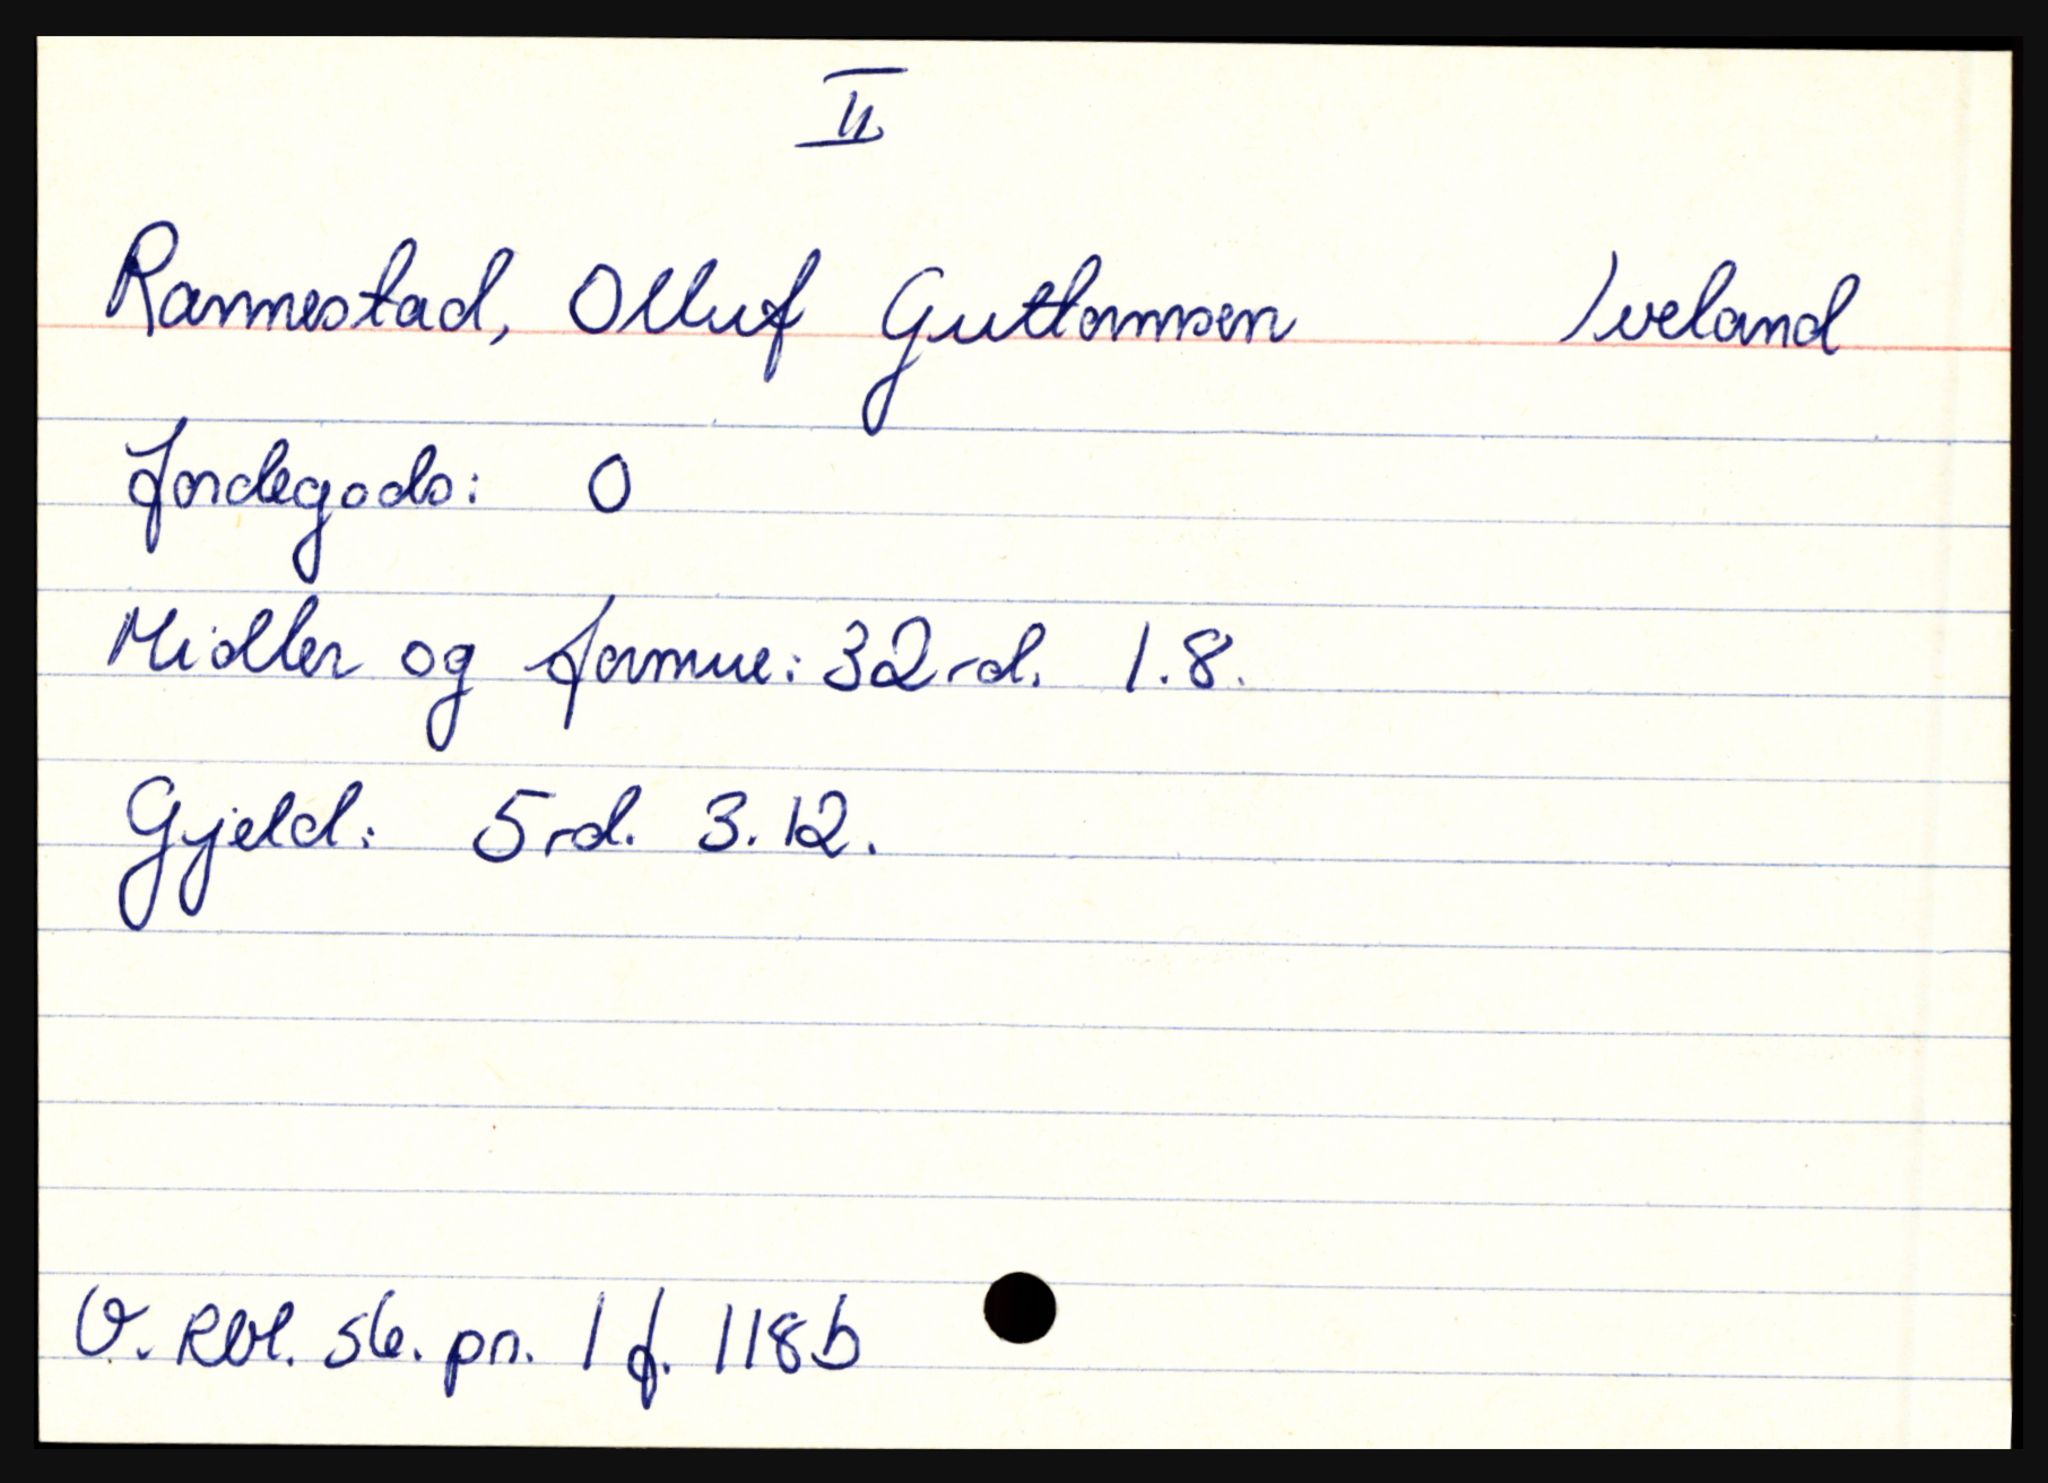 II
Rannestad, Olluf Gutlormsen Iveland
Jordegods: 0
Midler og formue: 32 rd. 1.8.
Gjeld: 5 rd. 3.12.
V. Rbl. sk. pr. 1 f. 118b